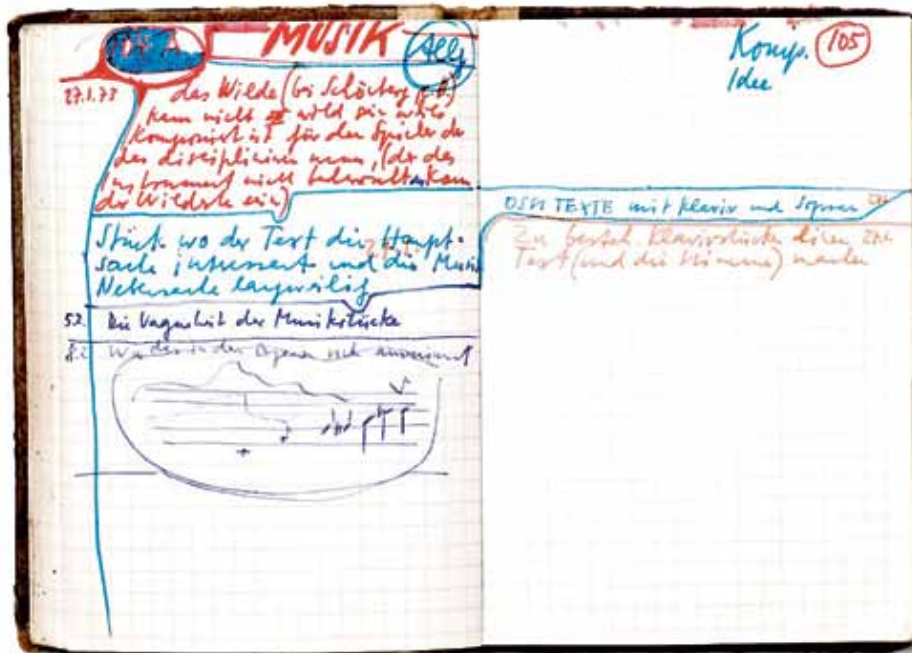 MUSIK
Allg
27.1.73
das Wilde (bei Schönberg z.B.)
kann nicht wild sein wenn
Komponist ist für den Spieler der
das disciplinieren muss, (der das
Instrument nicht beherrscht kann
der Wildeste sein)
Stück wo der Text die Haupt-
sache interessant und die Musik
Nebensache langweilig
5.2. Die Vagheit der Musikstücke
8.2 in den Organen sich
Komp. 105
Idee
OSSI TEXTE mit Klavier und Sopran
Zu besteh. Klavierstücken einen
Text (und die Stimme) machen